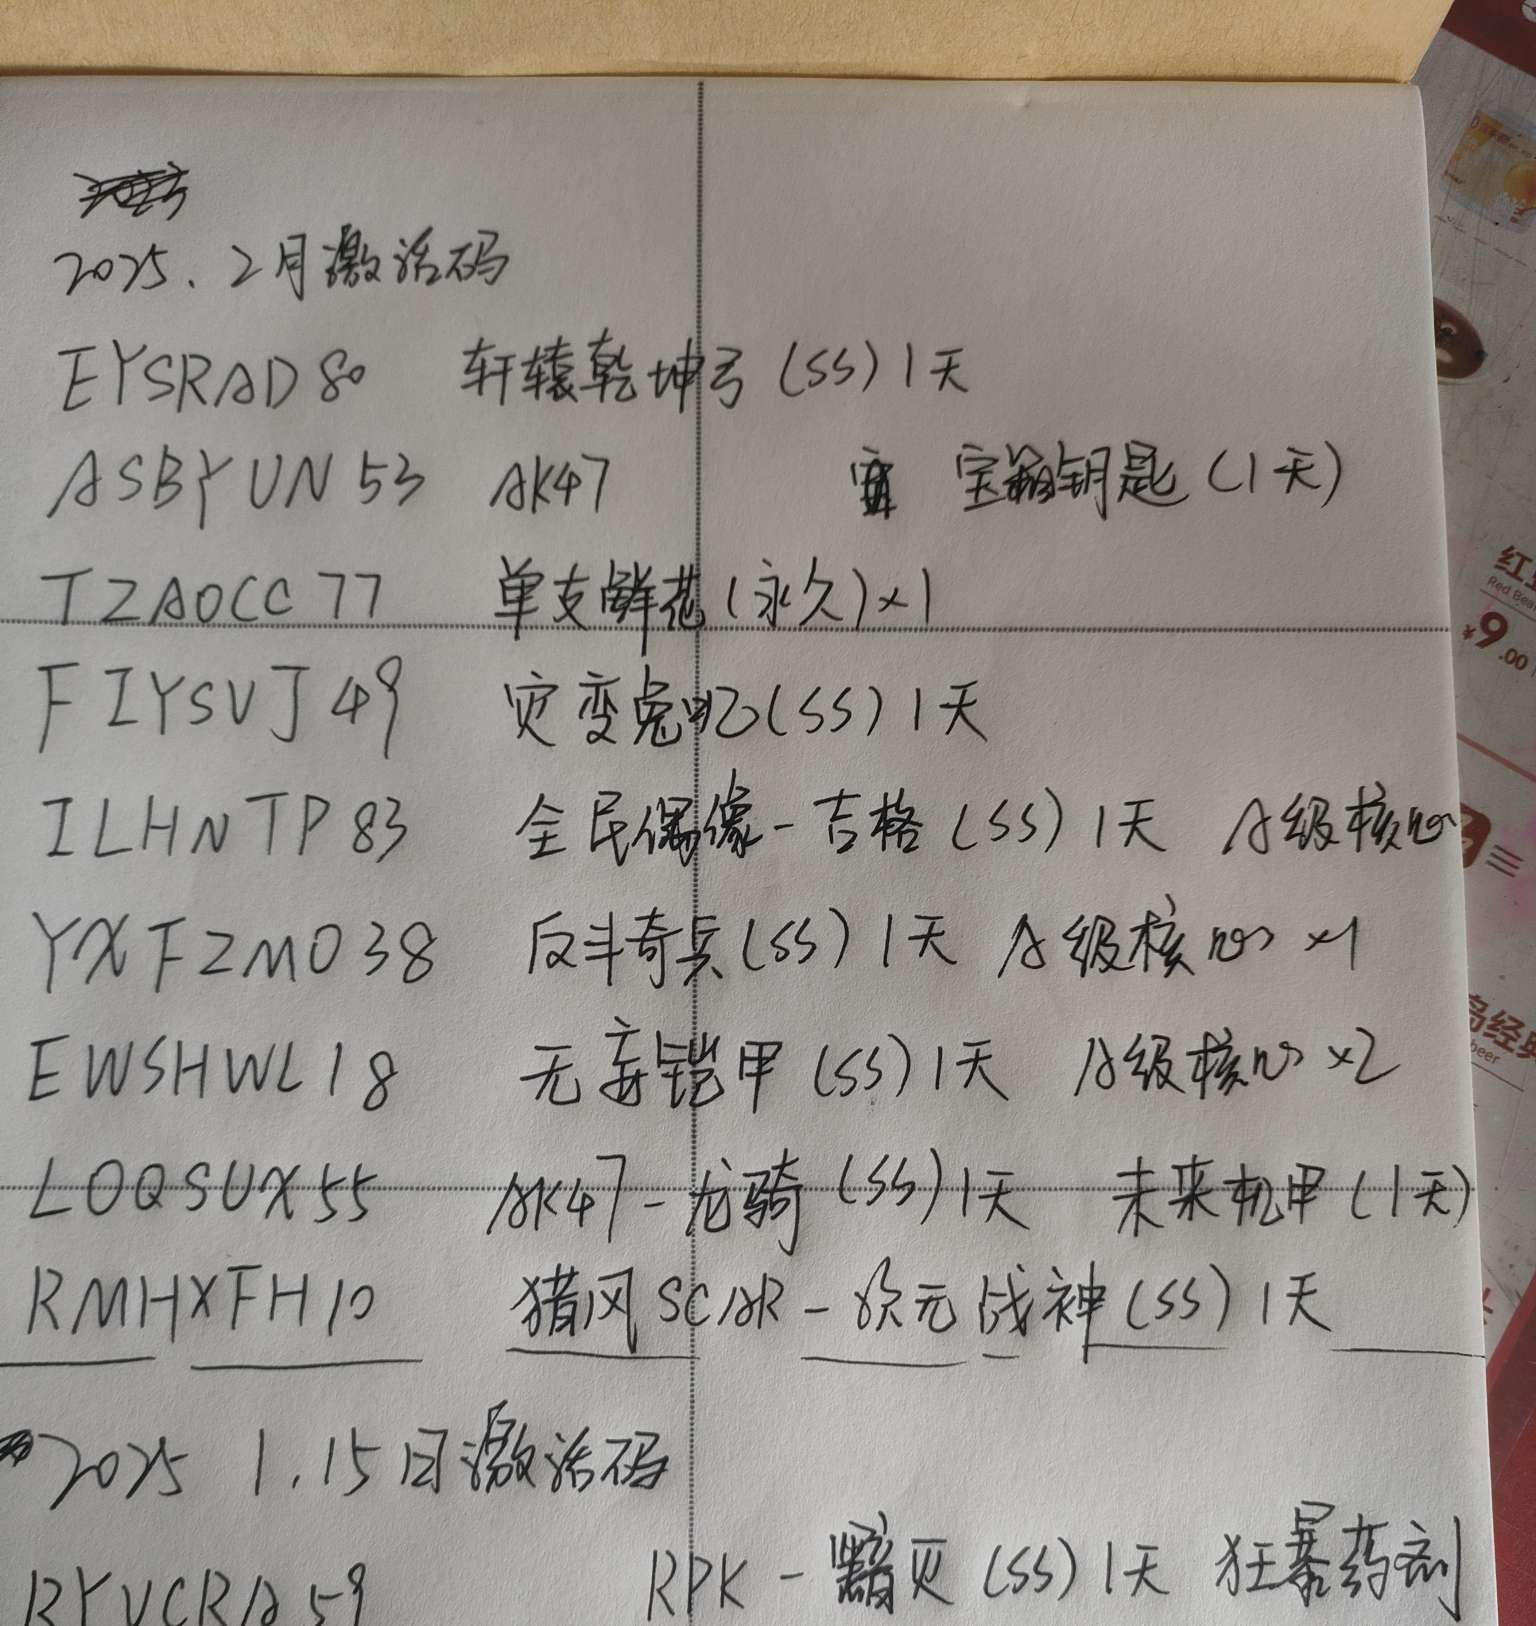 2025.2月激活码
EYSRAD80 轩辕乾坤弓(SS)1天
ASBYUN53 AK47 宝箱钥匙(1天)
TZAOCC77 单支鲜花(永久)×1
FIYSVJ49 灾变兔妃(SS)1天
ILHNTP83 全民偶像-吉格(SS)1天 A级核心
YXFZMO38 反斗奇兵(SS)1天 A级核心×1
EWSHWL18 无妄铠甲(SS)1天 A级核心×2
LOQSUX55 AK47-龙骑(SS)1天 未来机甲(1天)
RMHXFH10 猎风SCAR-次元战神(SS)1天
2025 1.15日激活码
RYUCRA59 RPK-黯灭(SS)1天 狂暴药剂
红豆
Red Bea
¥9.00
高经典
beer